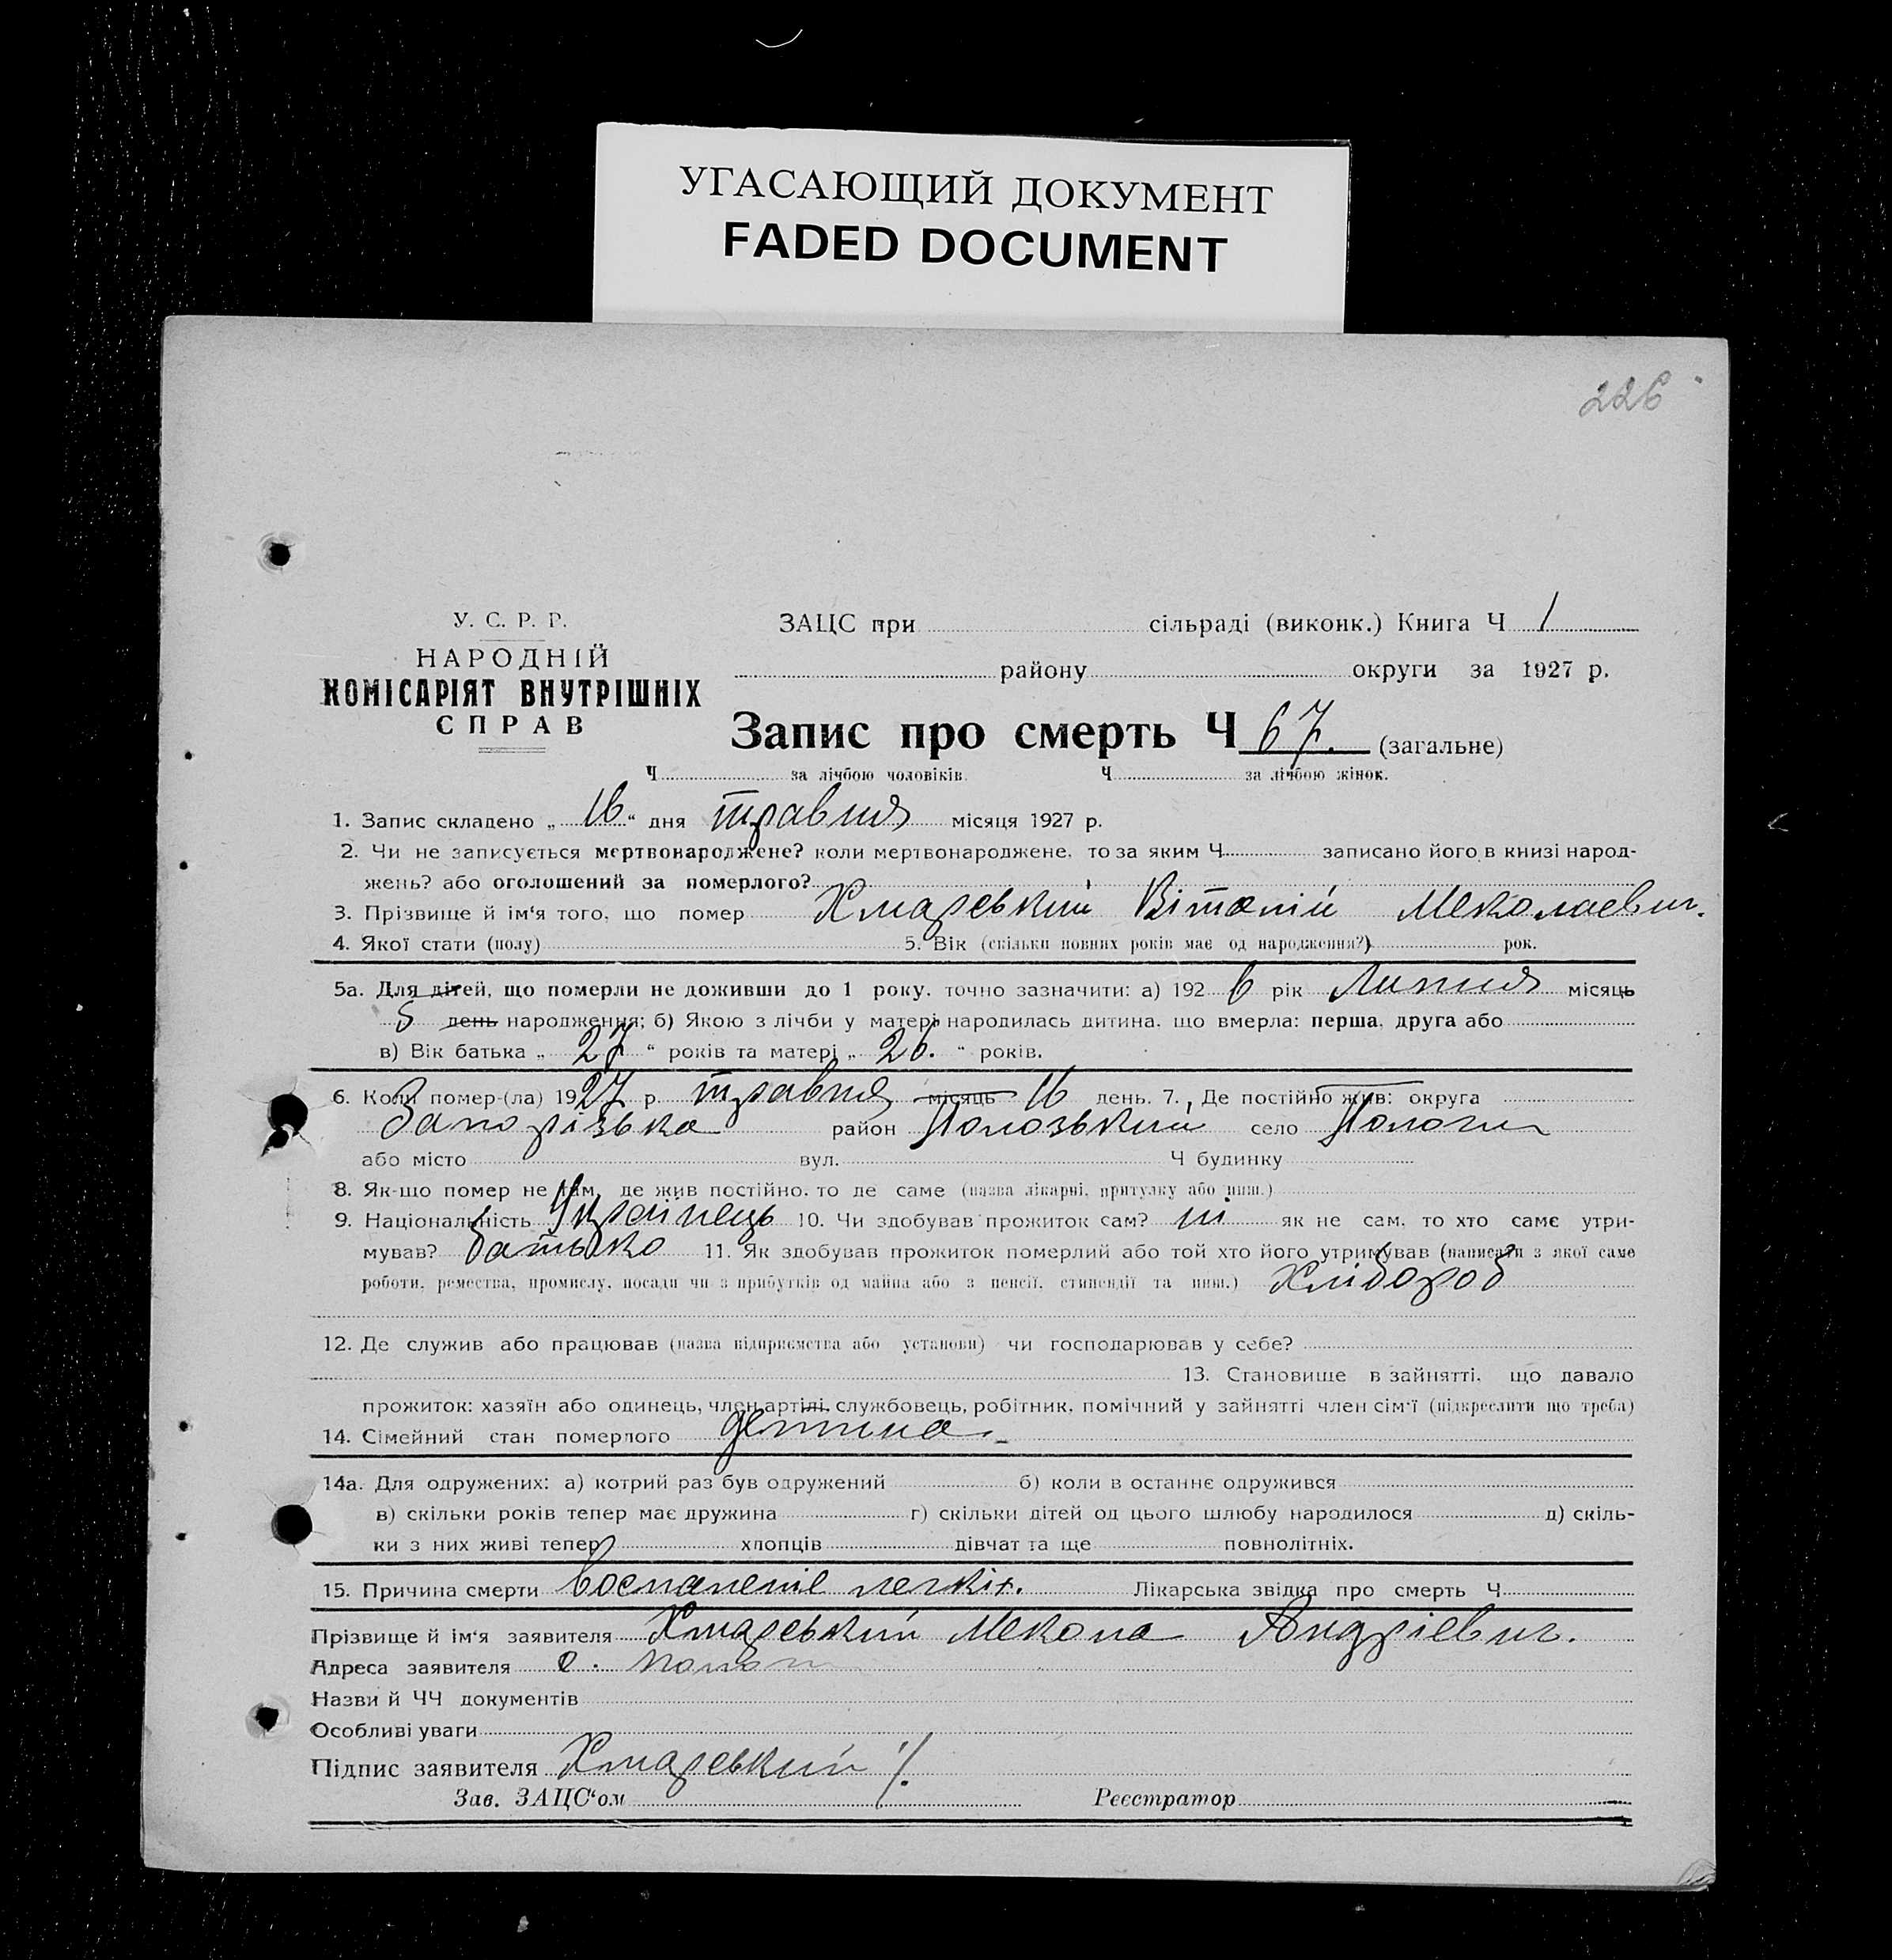 УГАСАЮЩИЙ ДОКУМЕНТ
FADED DOCUMENT
226
У. С. Р. Р.
НАРОДНІЙ
КОМІСАРІЯТ ВНУТРІШНІХ
СПРАВ
ЗАЦС при сільраді (виконк.) Книга Ч 1
району округи за 1927 р.
Запис про смерть Ч 67. (загальне)
Ч за лічбою чоловіків. Ч за лічбою жінок.
1. Запис складено „ 16 “ дня травня місяця 1927 р.
2. Чи не записується мертвонароджене? коли мертвонароджене, то за яким Ч записано його в книзі народ-
жень? або оголошений за померлого?
3. Прізвище й ім‘я того, що помер Хмаревький Віталій Меколаевич.
4. Якої стати (полу) 5. Вік (скільки повних років має од народження?) рок.
5а. Для дітей, що померли не доживши до 1 року, точно зазначити: а) 192 6 рік Липня місяць
5 день народження; б) Якою з лічби у матері народилась дитина, що вмерла: перша, друга або
в) Вік батька „ 27 “ років та матері „ 26. “ років.
6. Коли помер-(ла) 1927 р. травня місяць 16 день. 7. Де постійно жив: округа
Запорізька район Полозький село Пологи
або місто вул. Ч будинку
8. Як-що помер не там, де жив постійно, то де саме (назва лікарні, притулку або инш.)
9. Національність Українець 10. Чи здобував прожиток сам? ні як не сам, то хто саме утри-
мував? батько 11. Як здобував прожиток померлий або той хто його утримував (написати з якої саме
роботи, ремества, промислу, посади чи з прибутків од майна або з пенсії, стипендії та инш.) Хлібороб
12. Де служив або працював (назва підприємства або установи) чи господарював у себе?
13. Становище в зайнятті, що давало
прожиток: хазяїн або одинець, член артілі, службовець, робітник, помічний у зайнятті член сім‘ї (підкреслити що треба)
14. Сімейний стан померлого детина.
14а. Для одружених: а) котрий раз був одружений б) коли в останнє одружився
в) скільки років тепер має дружина г) скільки дітей од цього шлюбу народилося д) скіль-
ки з них живі тепер хлопців дівчат та ще повнолітніх.
15. Причина смерти воспаленіе легкіх. Лікарська звідка про смерть Ч
Прізвище й ім‘я заявителя Хмаревький Мекола Андріевич.
Адреса заявителя с. Пологи
Назви й ЧЧ документів
Особливі уваги
Підпис заявителя Хмаревький
Зав. ЗАЦС‘ом Реєстратор